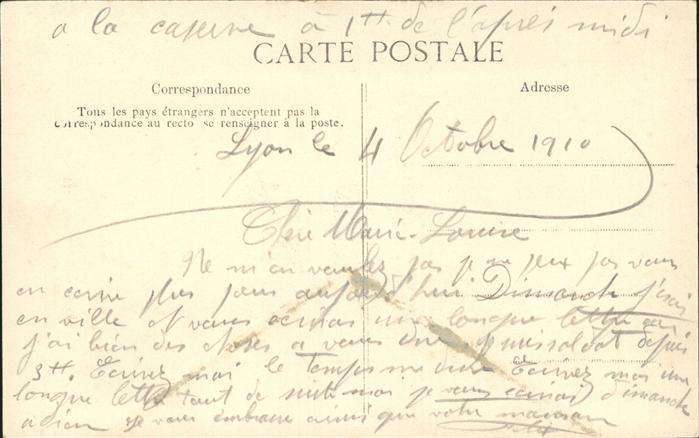 a la caserne à 1H de l'après midi
CARTE POSTALE
Correspondance
Adresse
Tous les pays étrangers n'acceptent pas la
correspondance au recto se renseigner à la poste.
Lyon le 4 Octobre 1910
Chère Marie-Louise
Ne m'en voulez pas je ne peux pas vous
en ecrire plus pour aujourd'hui Dimanche j'irai
en ville et vous ecrirai une longue lettre car
j'ai bien des choses a vous dire soldat depuis
3H. Ecrivez moi le temps me dure Ecrivez moi une
longue lettre tout de suite moi je vous ecrirai dimanche
adieu je vous embrasse ainsi que votre maman